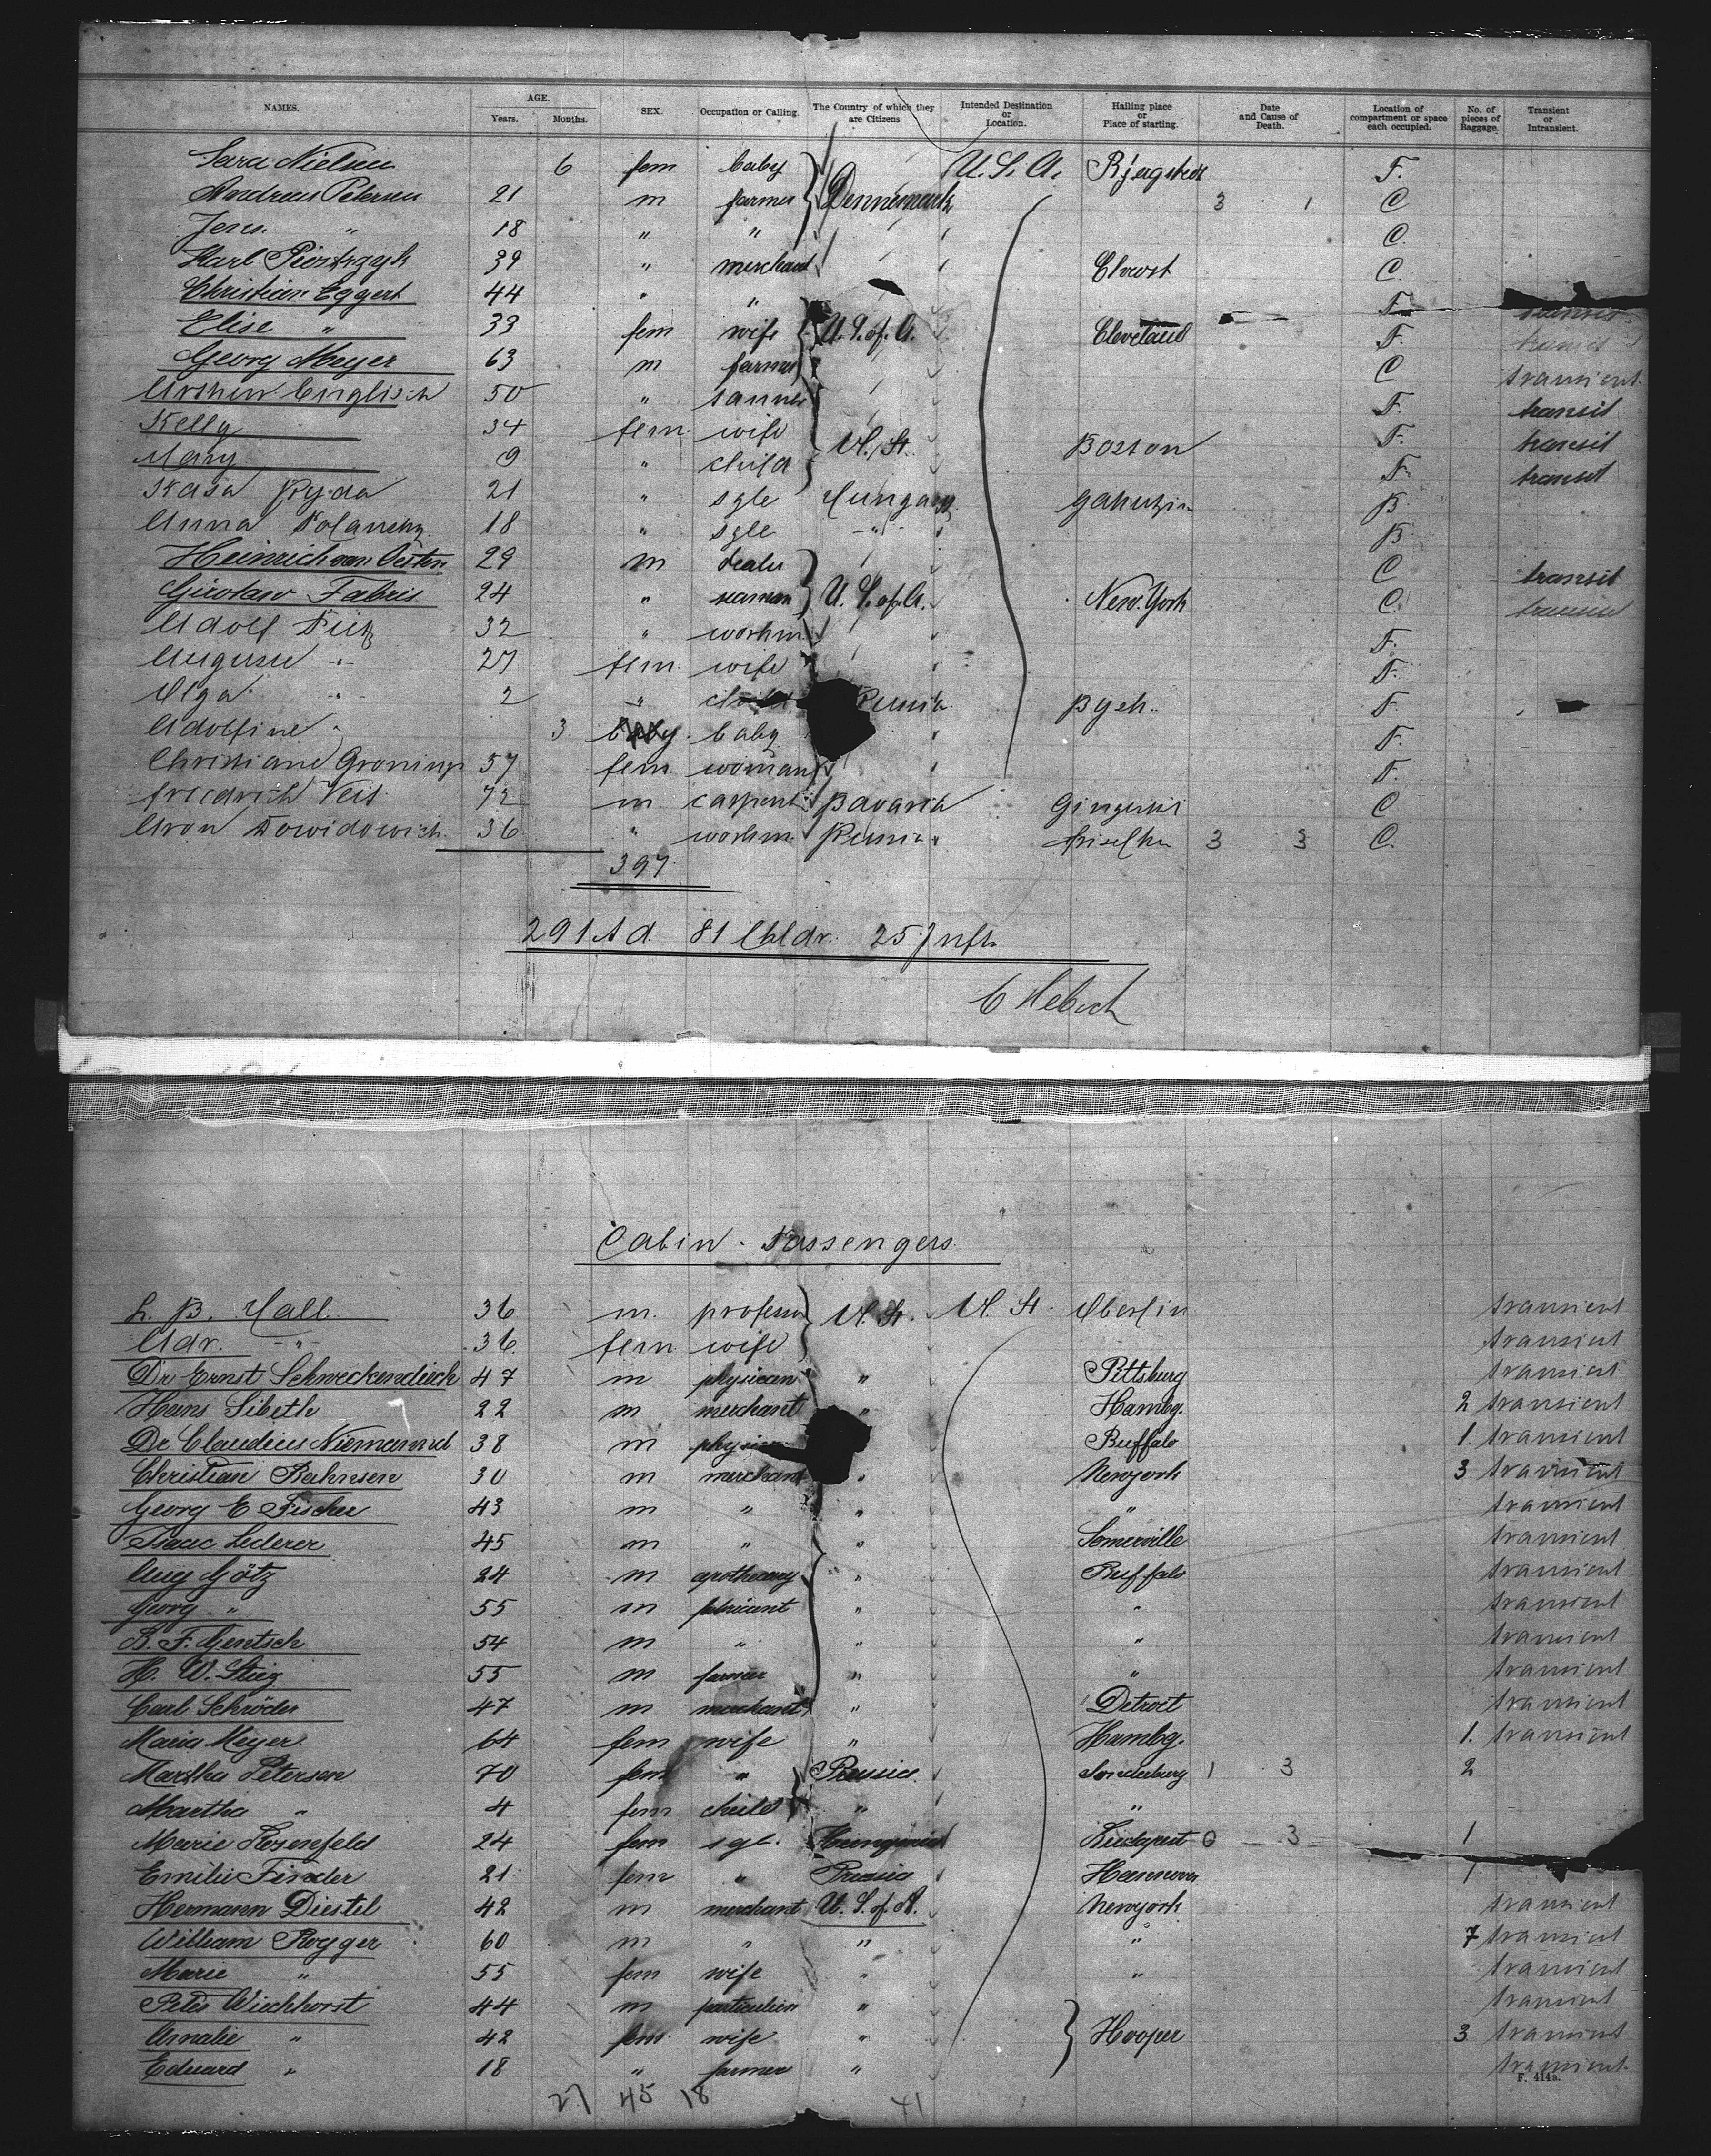 NAMES. AGE. Years. Months. SEX. Occupation or Calling. The Country of which they are Citizens Intended Destination or Location. Hailing place or Place of starting. Date and Cause of Death. Location of compartment or space each occupied. No. of pieces of Baggage. Transient or Intransient.
Sara Nielsen 6 fem baby U.S.A. F.
Andreas Petersen 21 m farmer Dennemark 3 1 C
Jens " 18 " " C.
Karl 39 " merchant C
Christian Eggert 44 " " F. transit
Elise " 33 fem wife U.S.of.A. Cleveland F. transit
Georg Meyer 63 m farmer C transient
Englisch 50 " tanner F. transit
Kelly 34 fem. wife U. St. Boston F. transit
Mary 9 " child F. transit
21 " sgle Hungary B
Anna 18 " sgle " B
Heinrich von Oesten 29 m dealer C transit
Fabris 24 " seaman U.S.of.A. New-York C.
Adolf 32 " workm. F.
Auguste " 27 fem. wife F.
Olga " 2 " child F.
Adolfine " 3 baby F.
Christiane 57 fem. woman F.
Friedrich Veit 72 m carpent. Bavaria C
Aron Dowidowich 36 " workm. 3 3 C.
397
291 Ad. 81 Chldr. 25 Inft.
Cabin-Passengers
L. B. Hall 36 m. professor U. St. U. St. Oberlin transient
Adr. " 36 fem wife transient
Dr Ernst Schweckendieck 47 m physican " Pittsburg transient
Hans Sibeth 22 m merchant " Hambg. 2 transient
Dr Claudius Niemannd 38 m Buffalo 1. transient
Christian Bahnsen 30 m merchant " Newyork 3 transient
Georg E Fischer 43 m " " " transient
Isaac Lederer 45 m " " Somerville transient
Aug Götz 24 m apothecary " Buffalo transient
Georg " 55 m fabricant " " transient
B. F. Gentsch 54 m " " " transient
H. W. 55 m farmer " " transient
Carl Schröder 47 m merchant " Detroit transient
Maria Meyer 64 fem wife " Hambg. 1. transient
Martha Petersen 70 fem " Prussia Sonderburg 1 3 2
Martha " 4 fem child " "
Marie Rosenfeld 24 fem sgl. Budapest 0 3 1
Emilie 21 fem " Prussia Hannover 1
Hermann Diestel 42 m merchant U. S. of A. Newyork transient
William Rogger 60 m " " " 7 transient
Marie " 55 fem wife " " transient
Peter Wiechhorst 44 m " transient
Amalie " 42 fem. wife " Hooper 3 transient
Eduard " 18 " farmer " transient.
F. 414a.
27 45 18 41